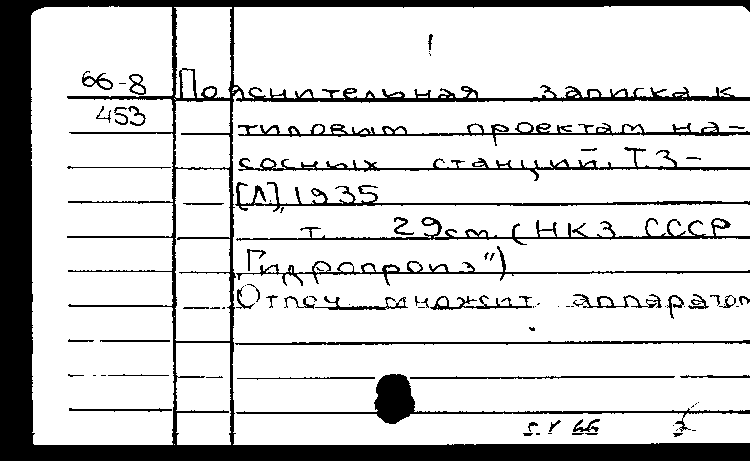 1
66-8 Пояснительная записка к
453
типовым проектам на-
сосных станций. Т.3-
[Л], 1935
т. 29см. (НКЗ СССР
"Гидропроиз")
Отпеч множит. аппаратом
5.V 66 3